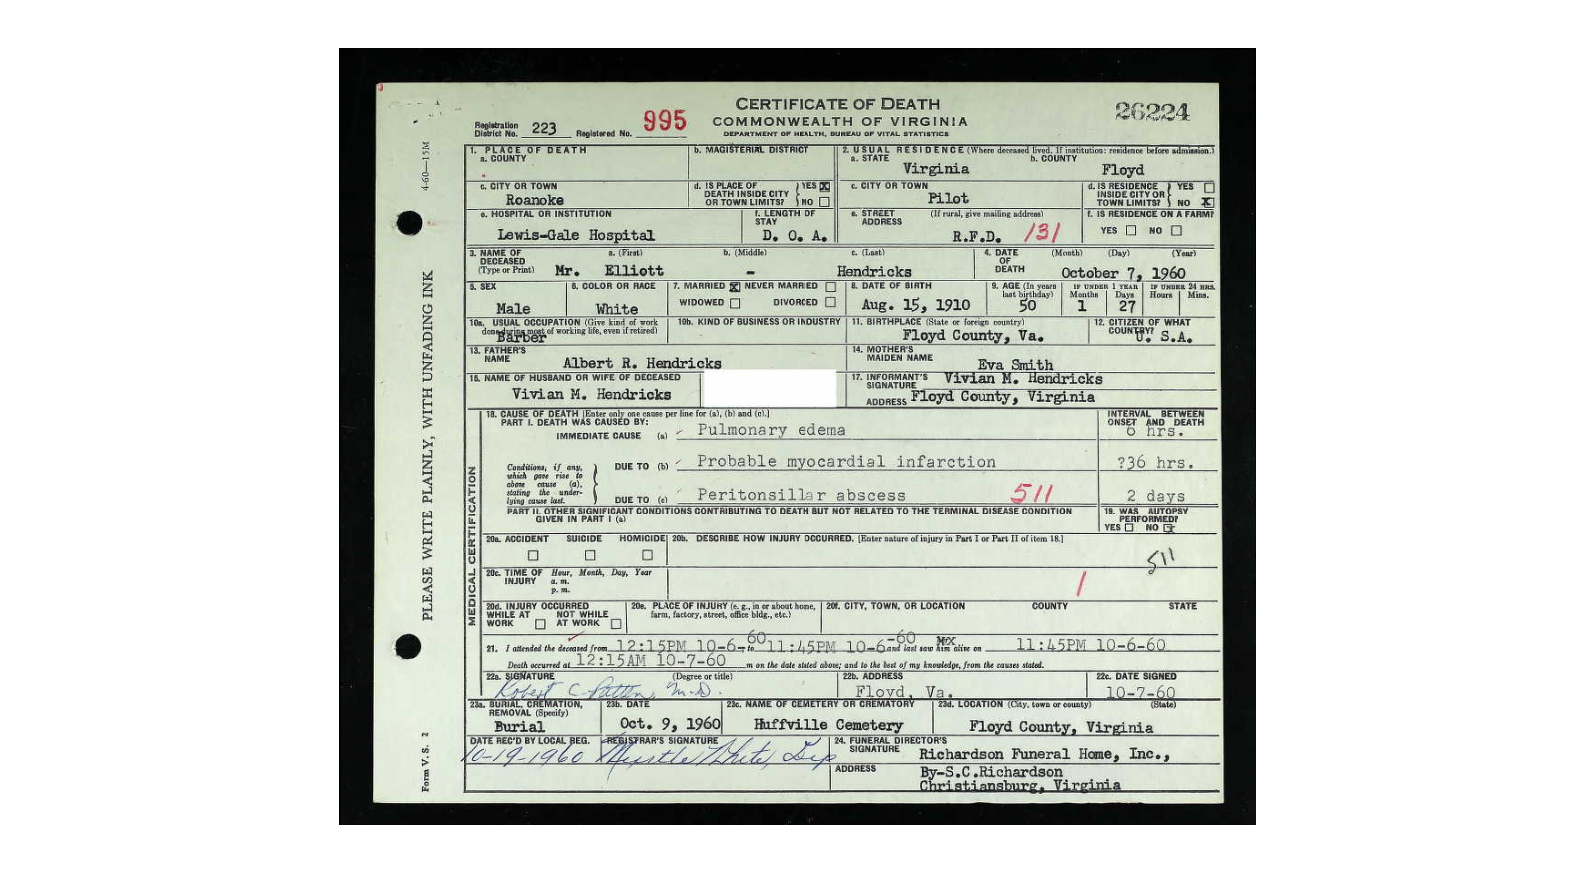 CERTIFICATE OF DEATH
COMMONWEALTH OF VIRGINIA
DEPARTMENT OF HEALTH, BUREAU OF VITAL STATISTICS
26224
Registration District No. 223 Registered No. 995
4-60—15M
PLEASE WRITE PLAINLY, WITH UNFADING INK
Form V. S. 2
1. PLACE OF DEATH
a. COUNTY
b. MAGISTERIAL DISTRICT
2. USUAL RESIDENCE (Where deceased lived. If institution: residence before admission.)
a. STATE Virginia b. COUNTY Floyd
c. CITY OR TOWN Roanoke
d. IS PLACE OF DEATH INSIDE CITY OR TOWN LIMITS? YES X NO
c. CITY OR TOWN Pilot
d. IS RESIDENCE INSIDE CITY OR TOWN LIMITS? YES NO X
e. HOSPITAL OR INSTITUTION Lewis-Gale Hospital
f. LENGTH OF STAY D. O. A.
e. STREET ADDRESS (If rural, give mailing address) R.F.D. 131
f. IS RESIDENCE ON A FARM? YES NO
3. NAME OF DECEASED (Type or Print) a. (First) b. (Middle) c. (Last)
Mr. Elliott - Hendricks
4. DATE OF DEATH (Month) (Day) (Year)
October 7, 1960
5. SEX Male
6. COLOR OR RACE White
7. MARRIED X NEVER MARRIED
WIDOWED DIVORCED
8. DATE OF BIRTH Aug. 15, 1910
9. AGE (In years last birthday) 50
IF UNDER 1 YEAR Months 1 Days 27
IF UNDER 24 HRS. Hours Mins.
10a. USUAL OCCUPATION (Give kind of work done during most of working life, even if retired) Barber
10b. KIND OF BUSINESS OR INDUSTRY
11. BIRTHPLACE (State or foreign country) Floyd County, Va.
12. CITIZEN OF WHAT COUNTRY? U. S.A.
13. FATHER'S NAME Albert R. Hendricks
14. MOTHER'S MAIDEN NAME Eva Smith
15. NAME OF HUSBAND OR WIFE OF DECEASED Vivian M. Hendricks
17. INFORMANT'S SIGNATURE Vivian M. Hendricks
ADDRESS Floyd County, Virginia
MEDICAL CERTIFICATION
18. CAUSE OF DEATH [Enter only one cause per line for (a), (b) and (c).]
PART I. DEATH WAS CAUSED BY:
INTERVAL BETWEEN ONSET AND DEATH
IMMEDIATE CAUSE (a) Pulmonary edema 6 hrs.
Conditions, if any, which gave rise to above cause (a), stating the underlying cause last.
DUE TO (b) Probable myocardial infarction ?36 hrs.
DUE TO (c) Peritonsillar abscess 511 2 days
PART II. OTHER SIGNIFICANT CONDITIONS CONTRIBUTING TO DEATH BUT NOT RELATED TO THE TERMINAL DISEASE CONDITION GIVEN IN PART I (a)
19. WAS AUTOPSY PERFORMED? YES NO X
20a. ACCIDENT SUICIDE HOMICIDE
20b. DESCRIBE HOW INJURY OCCURRED. [Enter nature of injury in Part I or Part II of item 18.]
511
20c. TIME OF INJURY Hour, Month, Day, Year
a. m.
p. m.
1
20d. INJURY OCCURRED
WHILE AT WORK NOT WHILE AT WORK
20e. PLACE OF INJURY (e. g., in or about home, farm, factory, street, office bldg., etc.)
20f. CITY, TOWN, OR LOCATION COUNTY STATE
21. I attended the deceased from 12:15PM 10-6-60 to 11:45PM 10-6-60 and last saw him alive on 11:45PM 10-6-60
Death occurred at 12:15AM 10-7-60 m on the date stated above; and to the best of my knowledge, from the causes stated.
22a. SIGNATURE (Degree or title) Robert C. Patten, M.D.
22b. ADDRESS Floyd, Va.
22c. DATE SIGNED 10-7-60
23a. BURIAL, CREMATION, REMOVAL (Specify) Burial
23b. DATE Oct. 9, 1960
23c. NAME OF CEMETERY OR CREMATORY Huffville Cemetery
23d. LOCATION (City, town or county) (State) Floyd County, Virginia
DATE REC'D BY LOCAL REG. 10-19-1960
REGISTRAR'S SIGNATURE Myrtle White, Dep
24. FUNERAL DIRECTOR'S SIGNATURE Richardson Funeral Home, Inc.,
ADDRESS By-S.C.Richardson
Christiansburg, Virginia